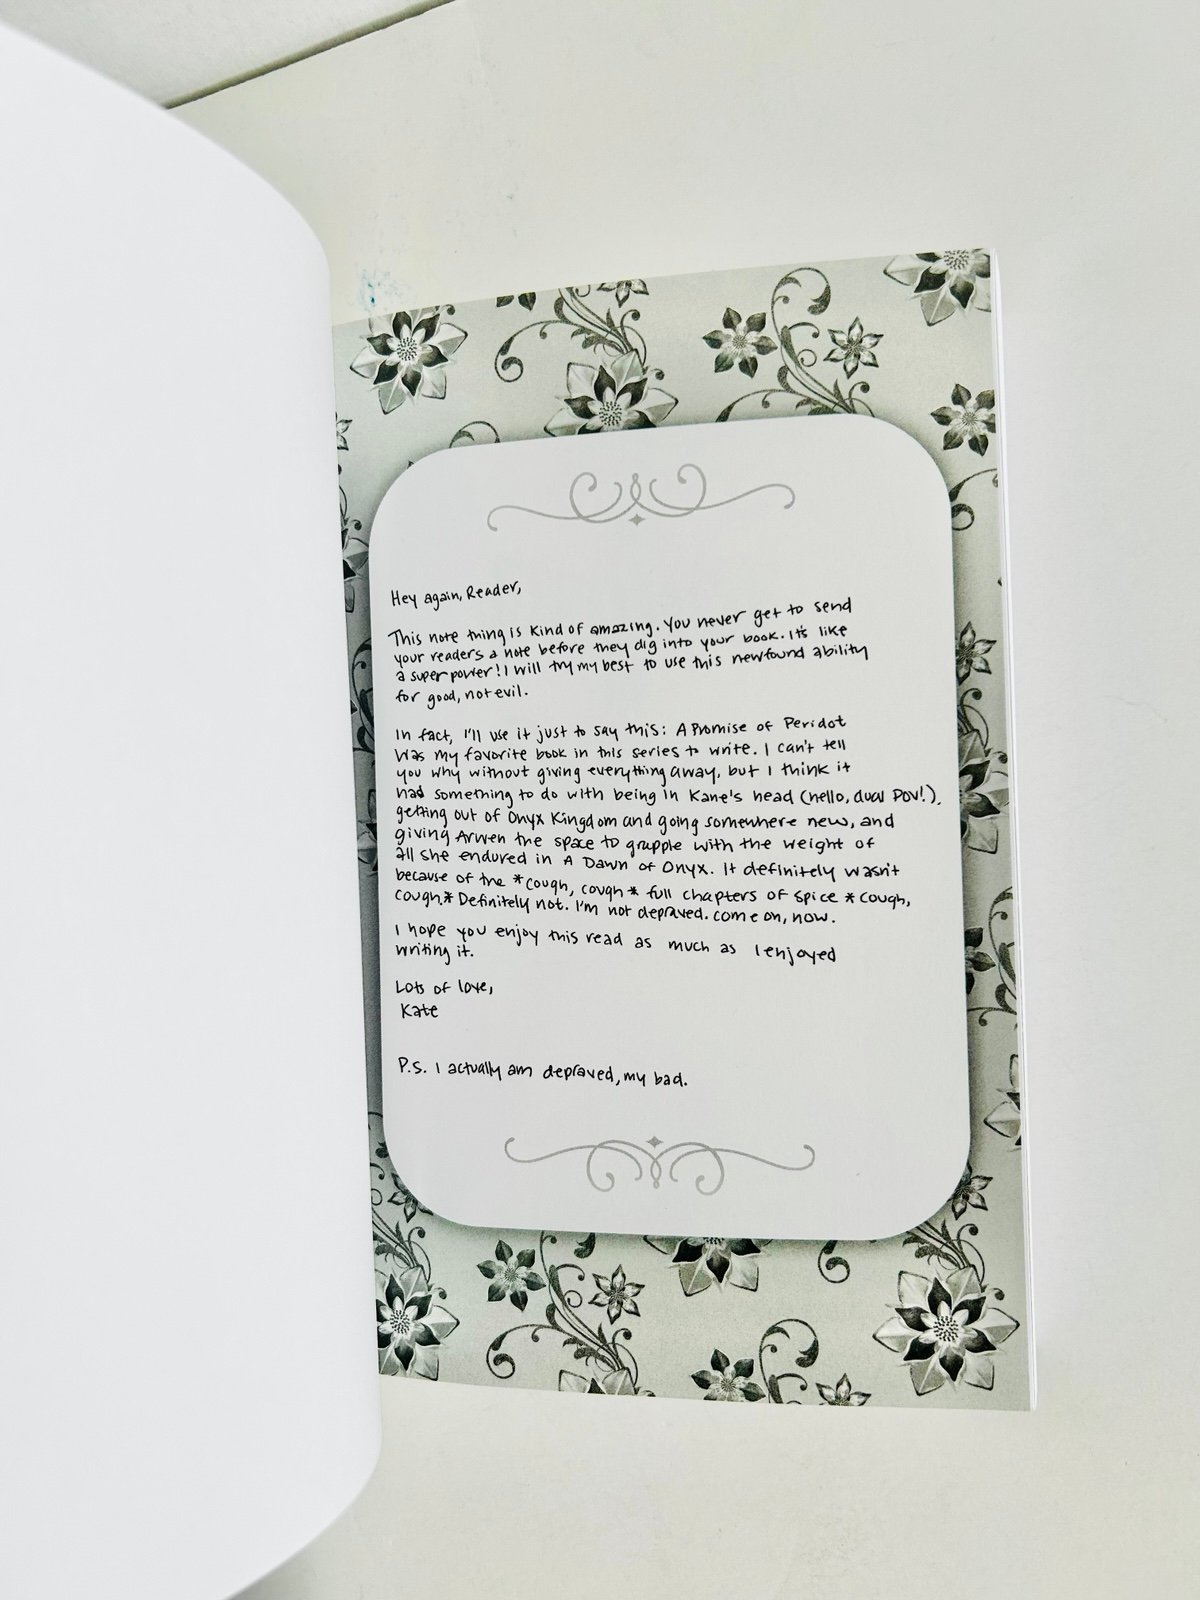 Hey again, Reader,
This note thing is kind of amazing. You never get to send
your readers a note before they dig into your book. It's like
a superpower! I will try my best to use this newfound ability
for good, not evil.
In fact, I'll use it just to say this: A Promise of Peridot
was my favorite book in this series to write. I can't tell
you why without giving everything away, but I think it
had something to do with being in Kane's head (hello, dual POV!),
getting out of Onyx Kingdom and going somewhere new, and
giving Arwen the space to grapple with the weight of
all she endured in A Dawn of Onyx. It definitely wasn't
because of the *cough, cough* full chapters of spice *cough,
cough.* Definitely not. I'm not depraved. Come on, now.
I hope you enjoy this read as much as I enjoyed
writing it.
Lots of love,
Kate
P.S. I actually am depraved, my bad.